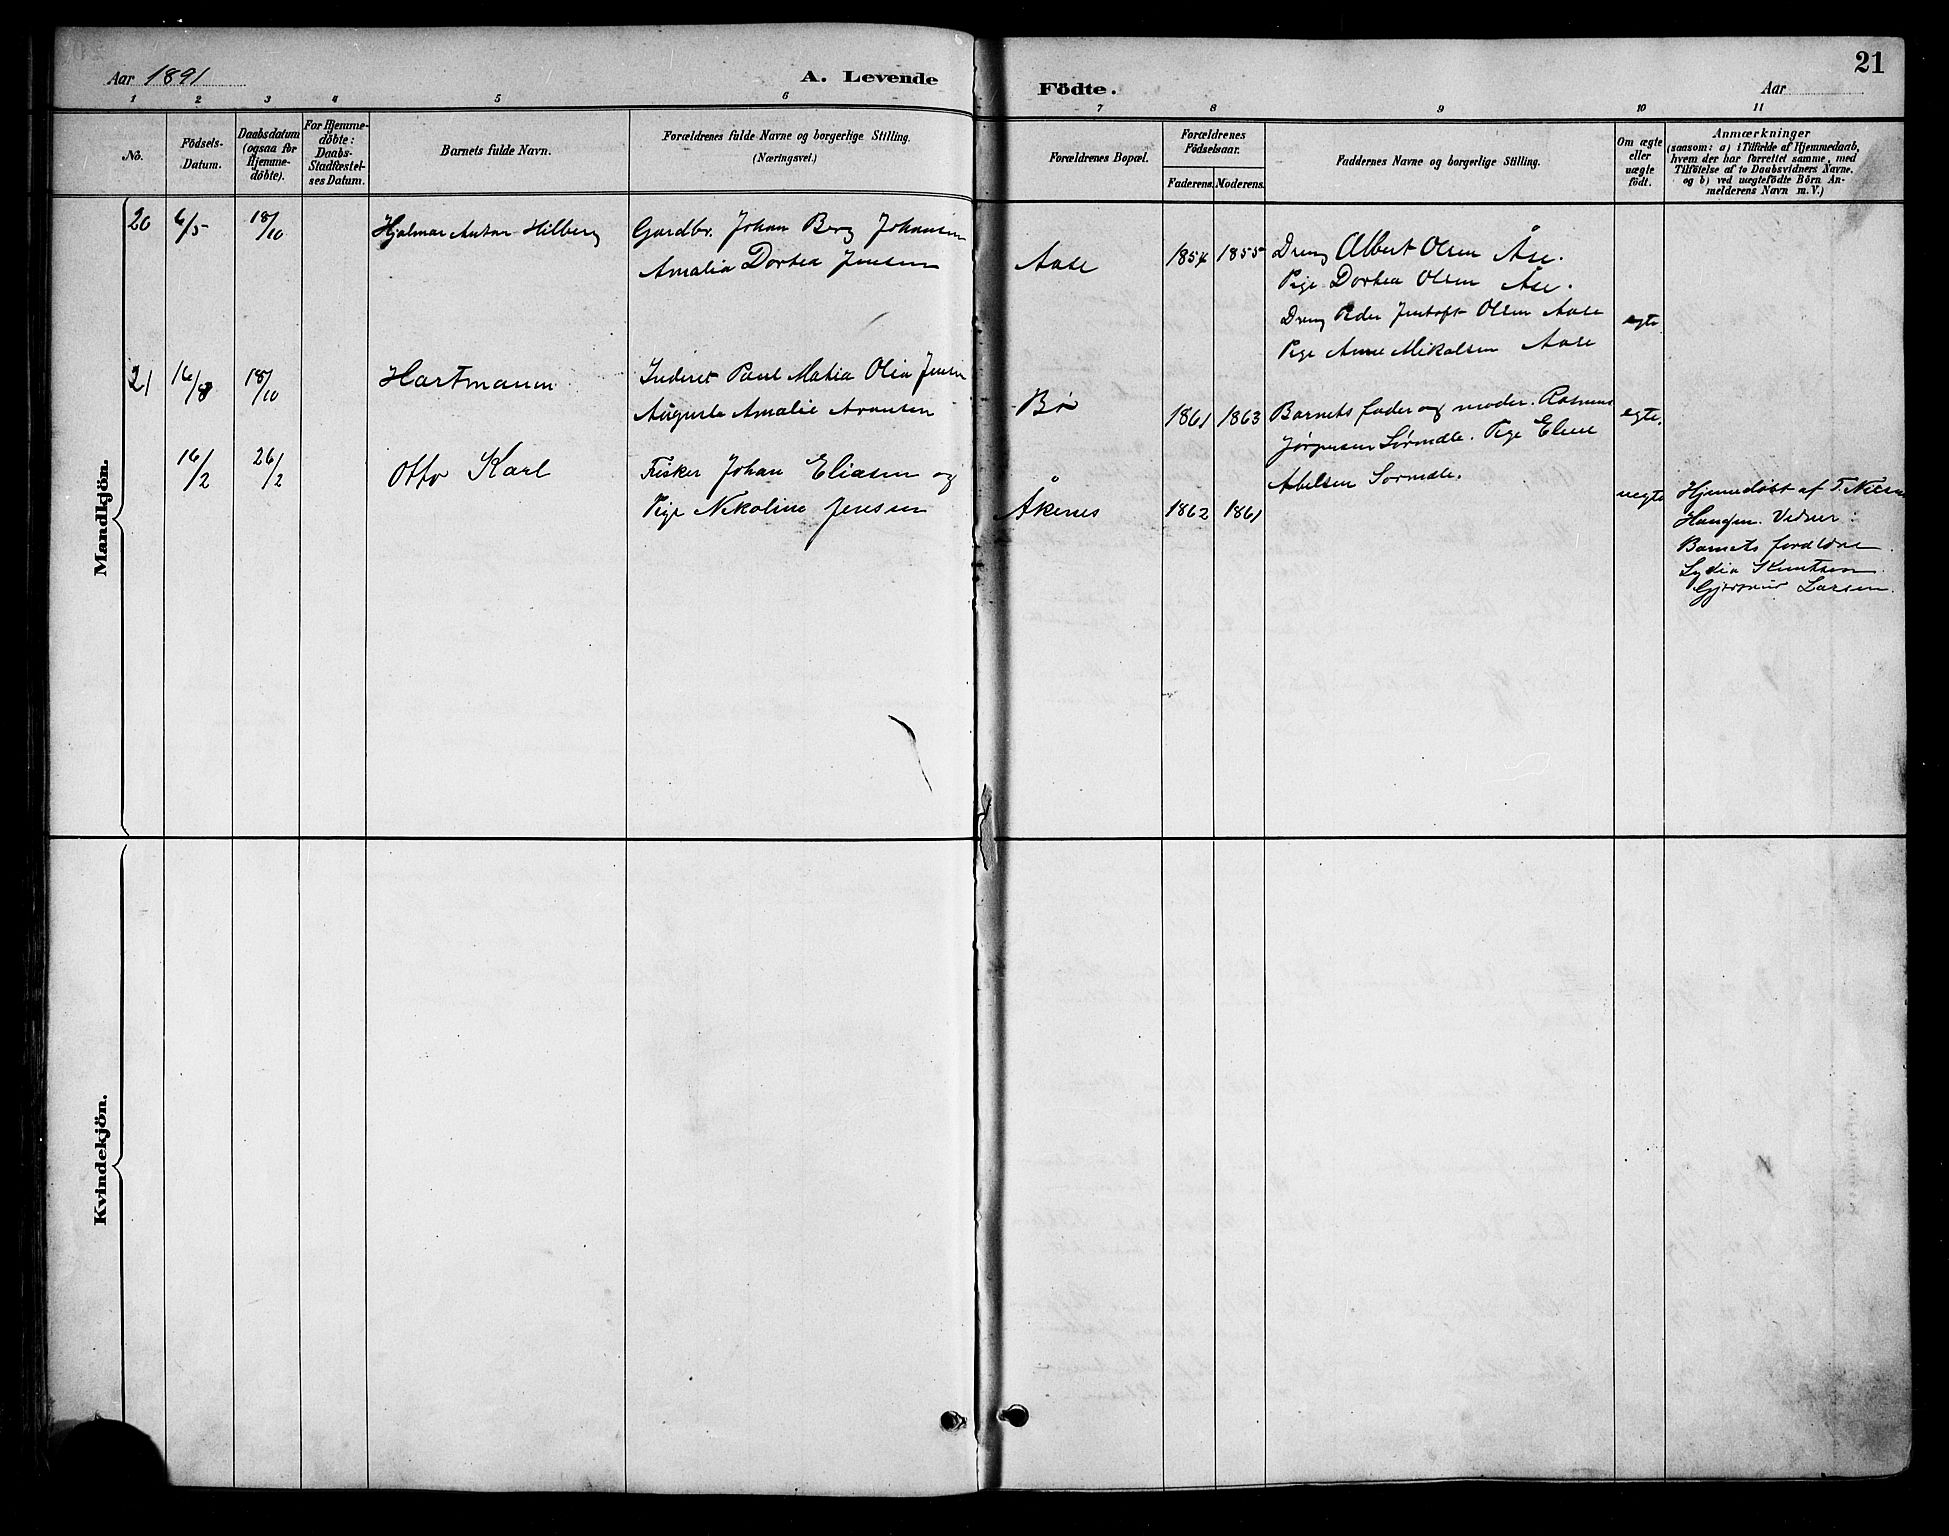 Aar 1891
A. Levende
Födte.
Aar
21
1 2 3 4 5 6 7 8 9 10 11
No.
Födsels-
Datum.
Daabsdatum
(ogsaa for
Hjemme-
döbte).
For Hjemme-
döbte:
Daabs-
Stadfæstel-
ses Datum.
Barnets fulde Navn.
Forældrenes fulde Navne og borgerlige Stilling.
(Næringsvei.)
Forældrenes Bopæl.
Forældrenes
Födselsaar.
Faderens. Moderens.
Faddernes Navne og borgerlige Stilling.
Om ægte
eller
uægte
födt.
Anmærkninger
(saasom: a) i Tilfælde af Hjemmedaab,
hvem der har forrettet samme, med
Tilföielse af to Daabsvidners Navne,
og b) ved uægtefödte Börn An-
melderens Navn m. V.)
Mandkjön.
20 6/5 18/10 Hjalmar Anton Hilberg
Gardbr. Johan Berg Johansen
Amalia Dortea Jensen
Aase 1854 1855
Dreng Albert Olsen Åse.
Pige Dortea Olsen Åse.
Dreng Peder Jentoft Olsen Aase
Pige Anne Mikalsen Aase
egte
21 16/8 18/10 Hartmann
Inderst Paul Matia Olia Jensen
Augusta Amalie Aronsen
Bø 1861 1863
Barnets fader og moder. Rasmus
Jørgensen Sørmdle. Pige Eline
Abelsen Sørmdle.
egte.
16/2 26/2 Otto Karl
Fisker Johan Eliasen og
Pige Nikoline Jensen
Åkenes 1862 1861
uegte
Hjemmedøbt af T. Nilsen
Haugen. Vidner:
Barnets forældre.
Lydia Knutsen.
Larsen.
Kvindekjön.